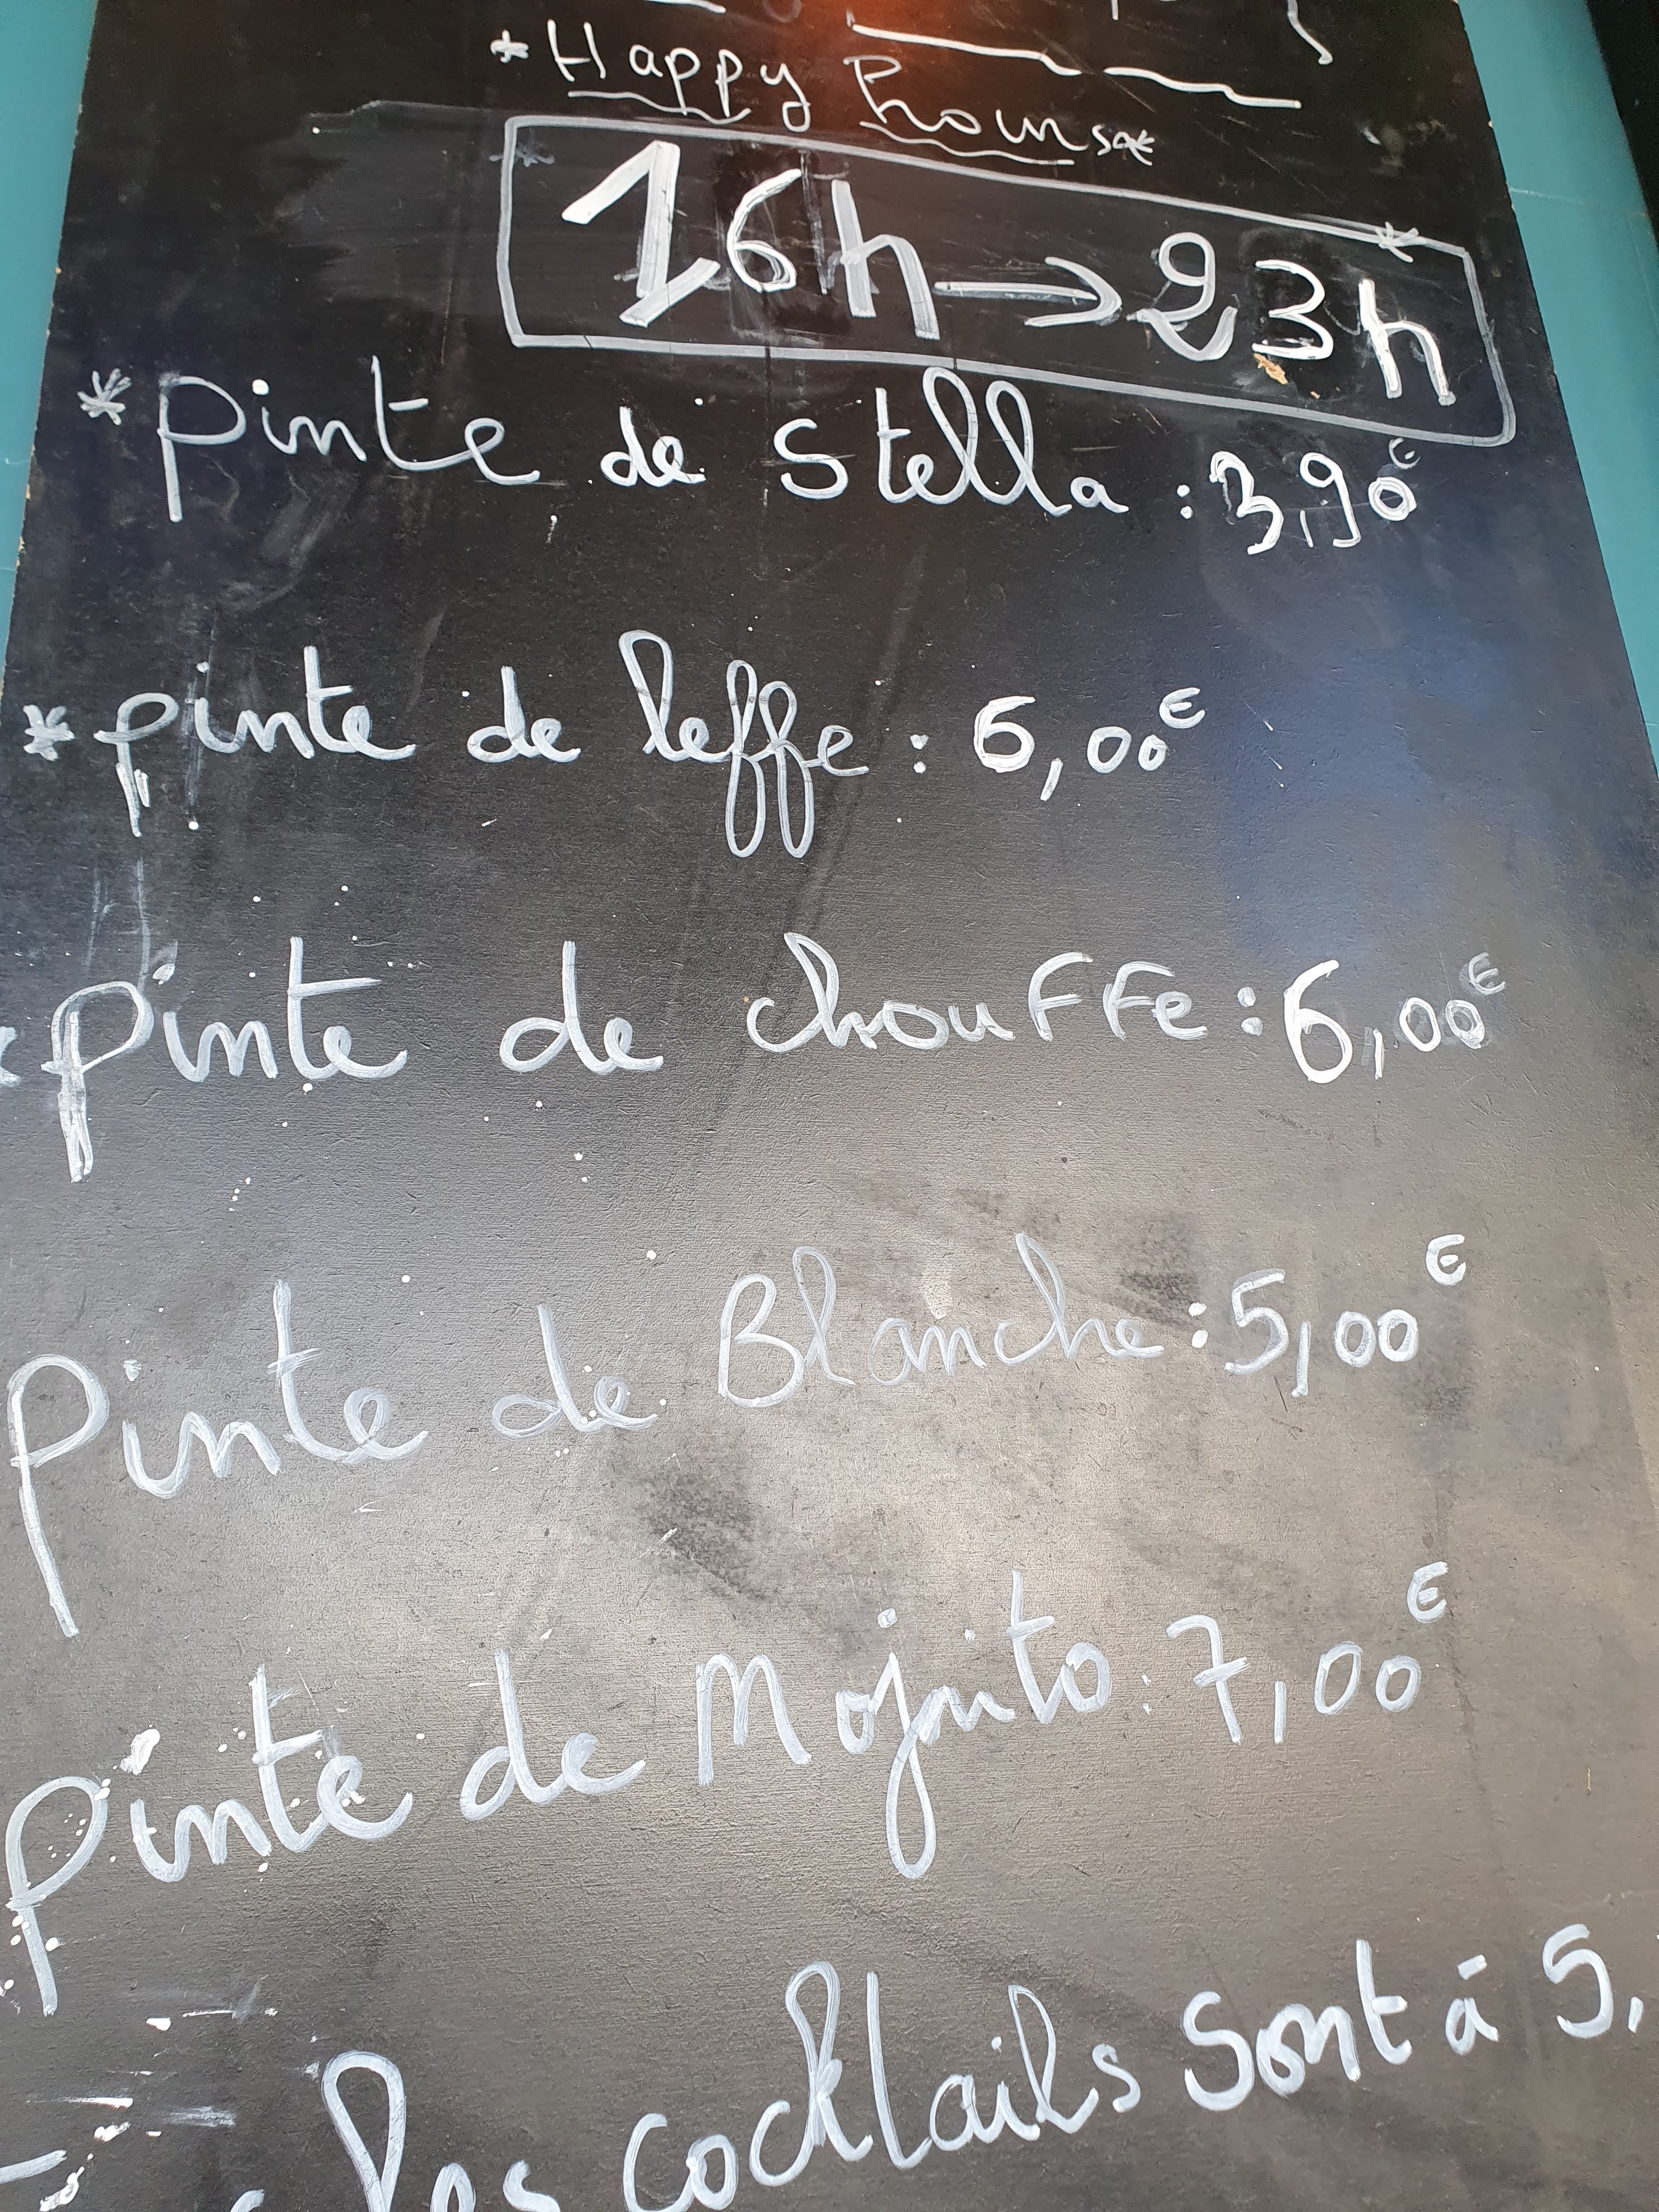 *Happy hours*
16h → 23h
*pinte de Stella : 3,90€
*pinte de leffe : 6,00€
pinte de chouffe : 6,00€
Pinte de Blanche : 5,00€
Pinte de Mojito : 7,00€
les cocktails sont à 5,